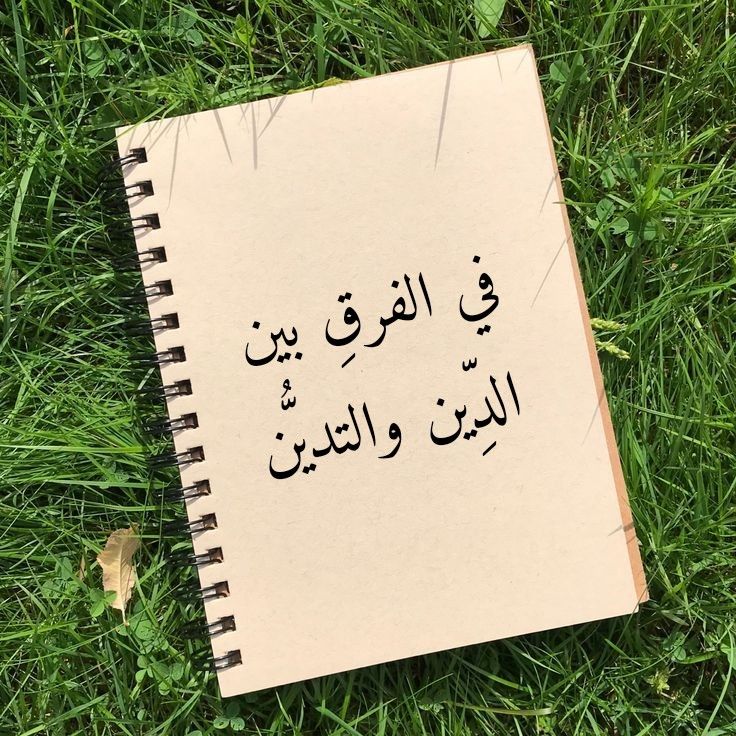 في الفرقِ بين
الدِّين والتديُّن